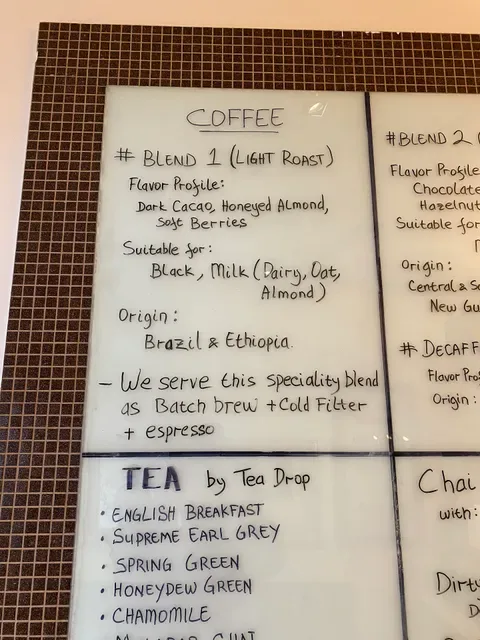 COFFEE
# BLEND 1 (LIGHT ROAST)
Flavor Profile:
Dark Cacao, Honeyed Almond,
Soft Berries
Suitable for:
Black, Milk (Dairy, Oat,
Almond)
Origin:
Brazil & Ethiopia
- We serve this speciality blend
as Batch brew + Cold Filter
+ espresso
#BLEND 2 (
Flavor Profile
Chocolate
Hazelnut
Suitable for
Origin:
Central & S
New Gu
# DECAFF
Flavor Pro
Origin:
TEA by Tea Drop
• ENGLISH BREAKFAST
• SUPREME EARL GREY
• SPRING GREEN
• HONEYDEW GREEN
• CHAMOMILE
CHAI
Chai
with:
Dirty